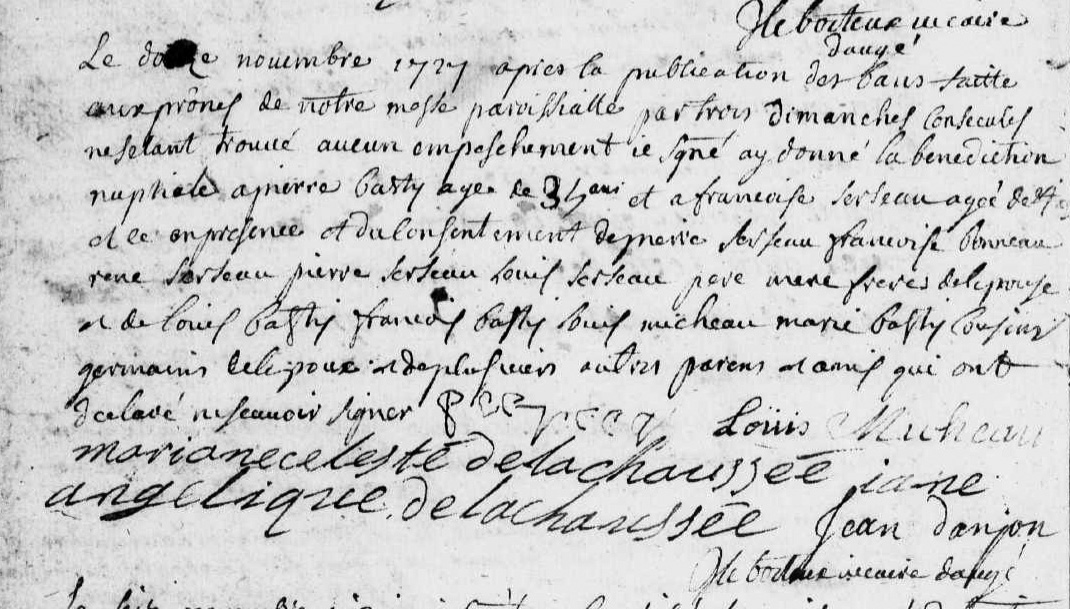 Le boiteux vicaire
daugé
Le douze novembre 1727 apres la publication des bans faitte
aux prônes de nôtre messe paroissialle par trois dimanches consecutifs
ne setant trouvé aucun empeschement ie sgné ay donné la benediction
nuptiale a pierre basty agé de 35 ans et a francoise serseau ageé de
et ce en presence et du consentement de pierre serseau francoise bonneau
rené serseau pierre serseau louis serseau pere mere freres de lepouse
et de louis basty francois basty louis micheau marie basty cousins
germains de lepoux et de plusieurs autres parens et amis qui ont
declaré ne scauoir signer Louis Micheau
mariane celeste de la chaussée iane
angelique de la chaussée Jean danjon
Le boiteux vicaire daugé